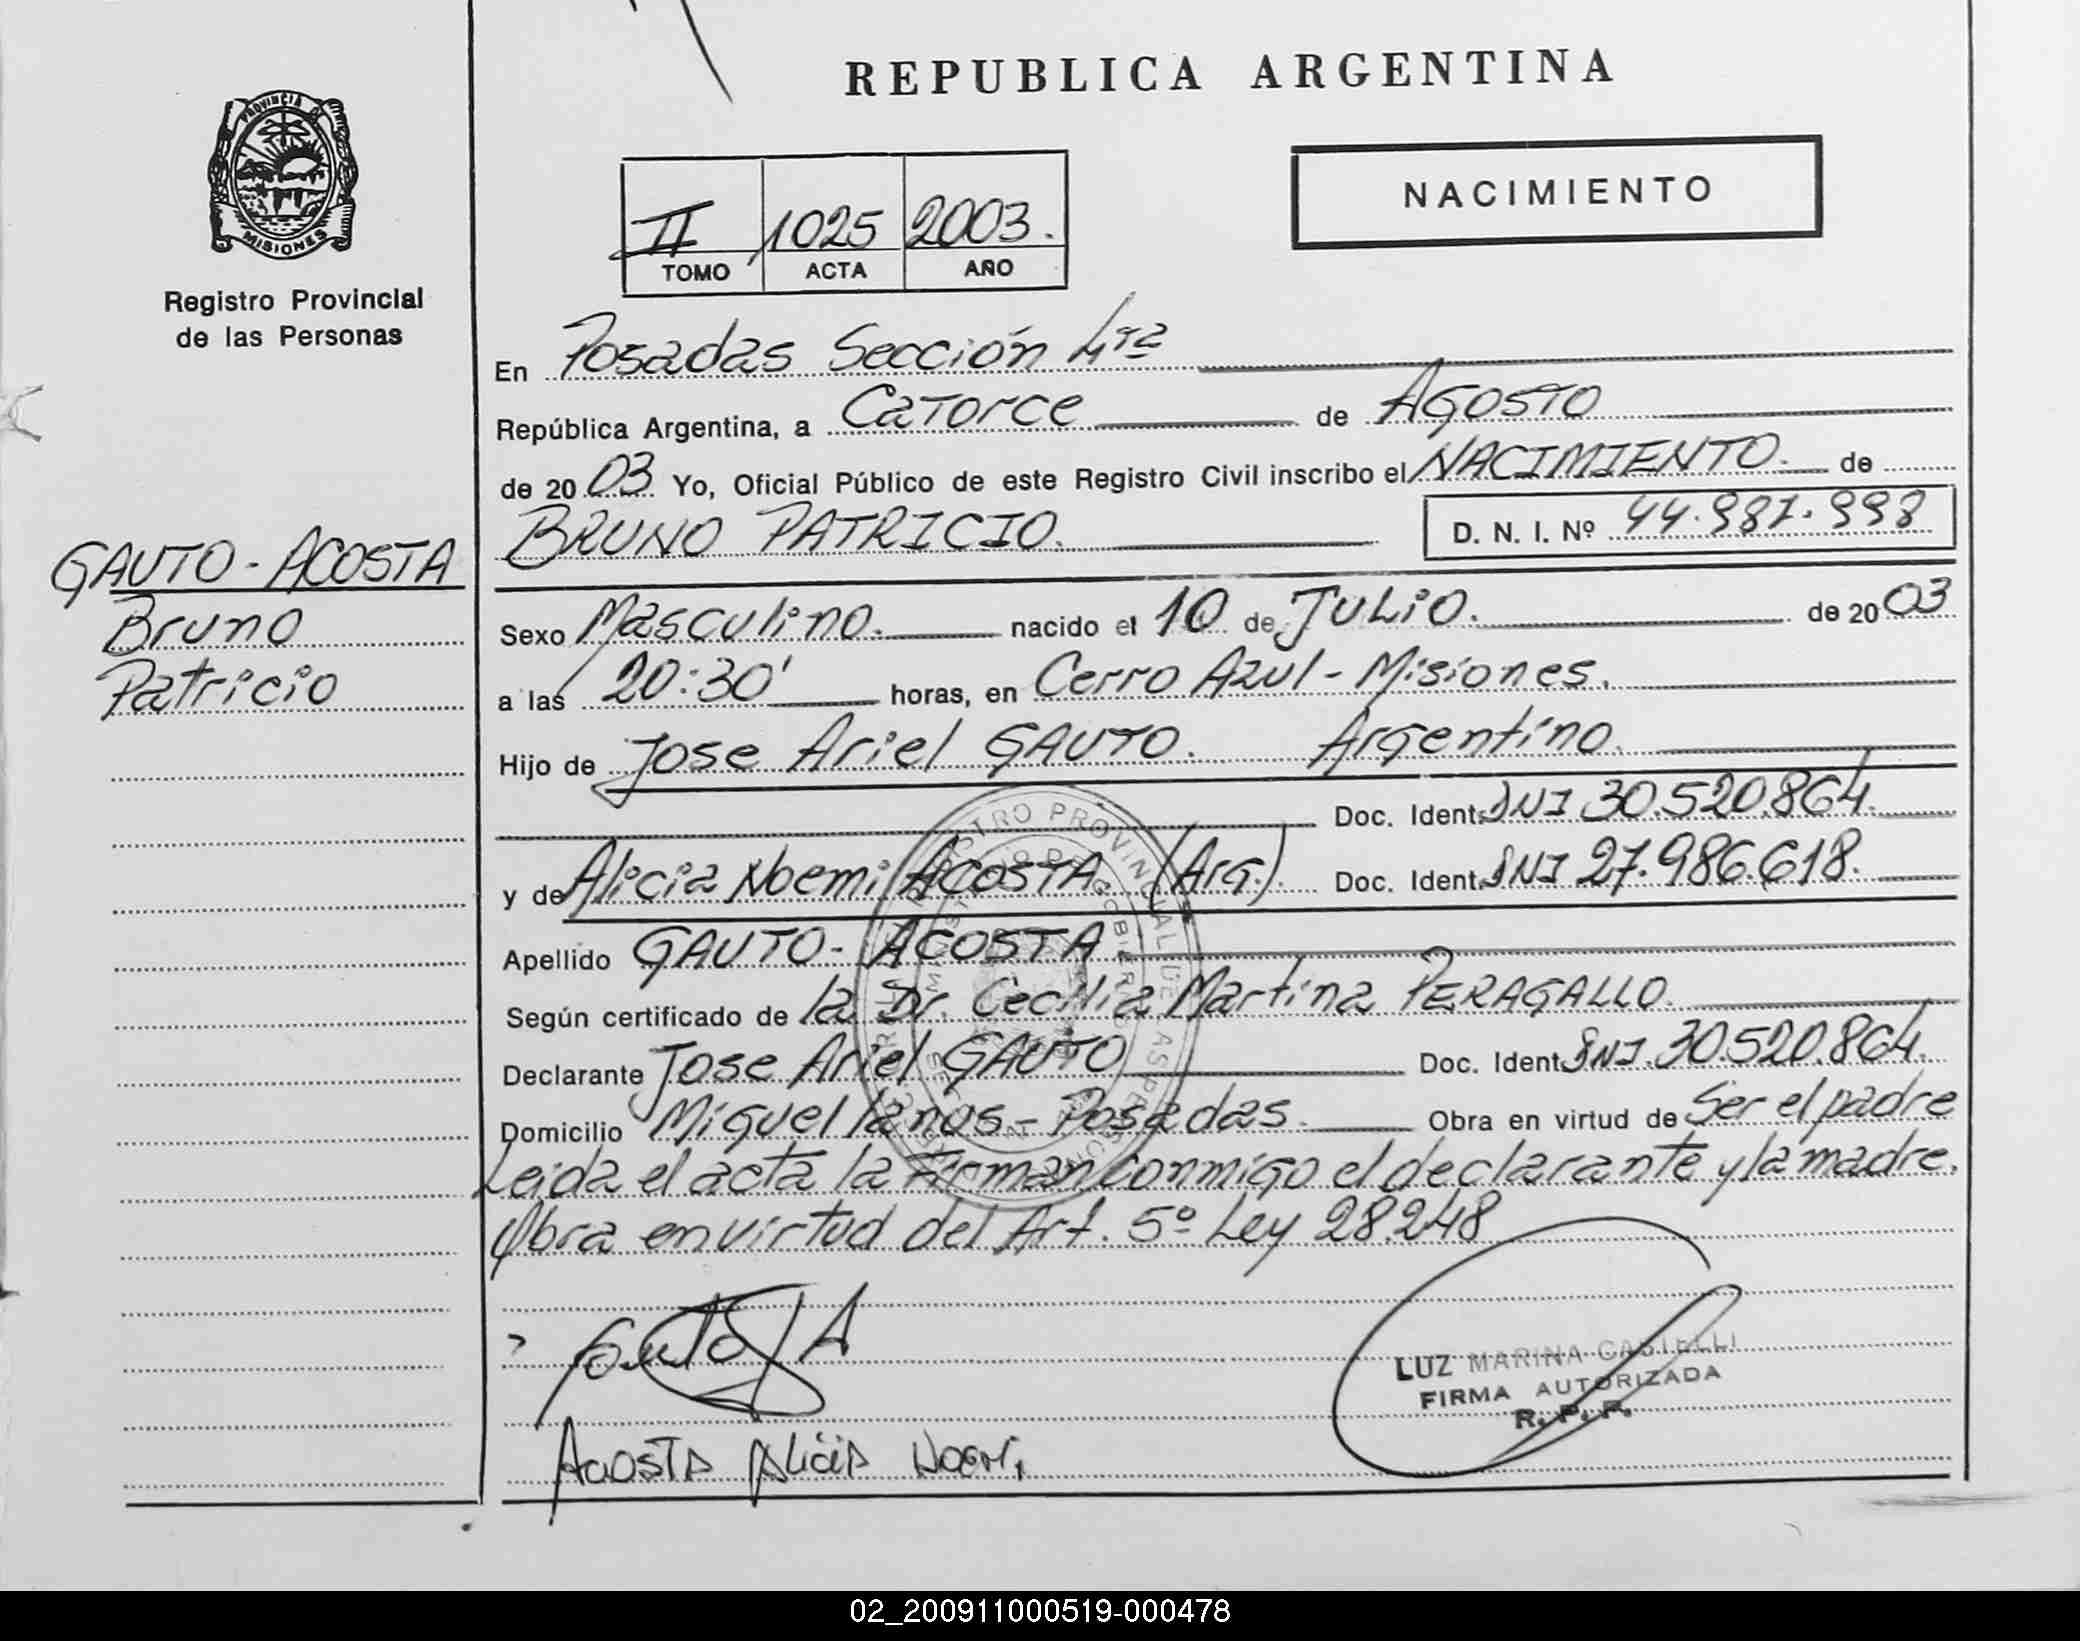 REPUBLICA ARGENTINA
PROVINCIA DE
MISIONES
Registro Provincial
de las Personas
NACIMIENTO
II 1025 2003.
TOMO ACTA AÑO
En Posadas Sección 4ta
República Argentina, a Catorce de AGOSTO
de 2003 Yo, Oficial Público de este Registro Civil inscribo el NACIMIENTO. de
BRUNO PATRICIO. D. N. I. Nº 44.987.998
GAUTO - ACOSTA
Bruno
Patricio
Sexo Masculino. nacido el 10 de JULIO. de 2003
a las 20:30' horas, en Cerro Azul - Misiones.
Hijo de Jose Ariel GAUTO. Argentino.
Doc. Ident. DNI 30.520.864.
y de Alicia Noemi ACOSTA (Arg.). Doc. Ident. DNI 27.986.618.
Apellido GAUTO - ACOSTA.
Según certificado de la Dr. Cecilia Martina PERAGALLO.
Declarante Jose Ariel GAUTO Doc. Ident. DNI. 30.520.864.
Domicilio Miguel lanus - Posadas. Obra en virtud de Ser el padre
Leida el acta la Firman conmigo el declarante y la madre.
Obra en virtud del Art. 5º Ley 28.248
Gauto J A
LUZ MARINA CASTELLI
FIRMA AUTORIZADA
R. P. P.
Acosta Alicia Noemi
02_200911000519-000478